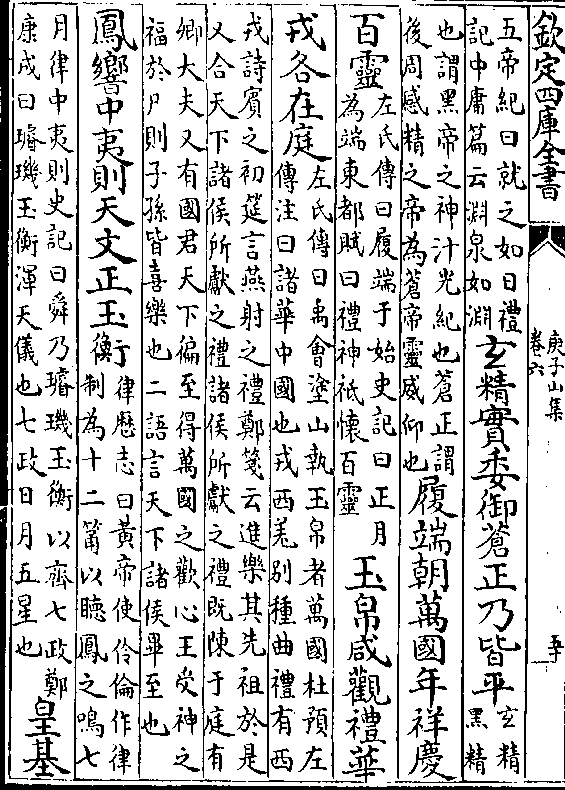 欽定四庫全書
庾子山集
卷六
五帝紀曰就之如日禮
記中庸篇云淵泉如淵
玄精實委御蒼正乃皆平
玄精
黑精
也謂黑帝之神汁光紀也蒼正謂
後周感精之帝為蒼帝靈威仰也
履端朝萬國年祥慶
百靈
左氏傳曰履端于始史記曰正月
為端東都賦曰禮神祇懷百靈
玉帛咸觀禮華
戎各在庭
左氏傳曰禹會塗山執玉帛者萬國杜預左
傳注曰諸華中國也戎西羗别種曲禮有西
戎詩賓之初筵言燕射之禮鄭箋云進樂其先祖於是
又合天下諸侯所獻之禮諸侯所獻之禮既陳于庭有
卿大夫又有國君天下徧至得萬國之歡心王受神之
福於尸則子孫皆喜樂也二語言天下諸侯畢至也
鳳響中夷則天文正玉衡
律歴志曰黃帝使伶倫作律
制為十二筩以聽鳳之鳴七
月律中夷則史記曰舜乃璿璣玉衡以齊七政鄭
康成曰璿璣玉衡渾天儀也七政日月五星也
皇基